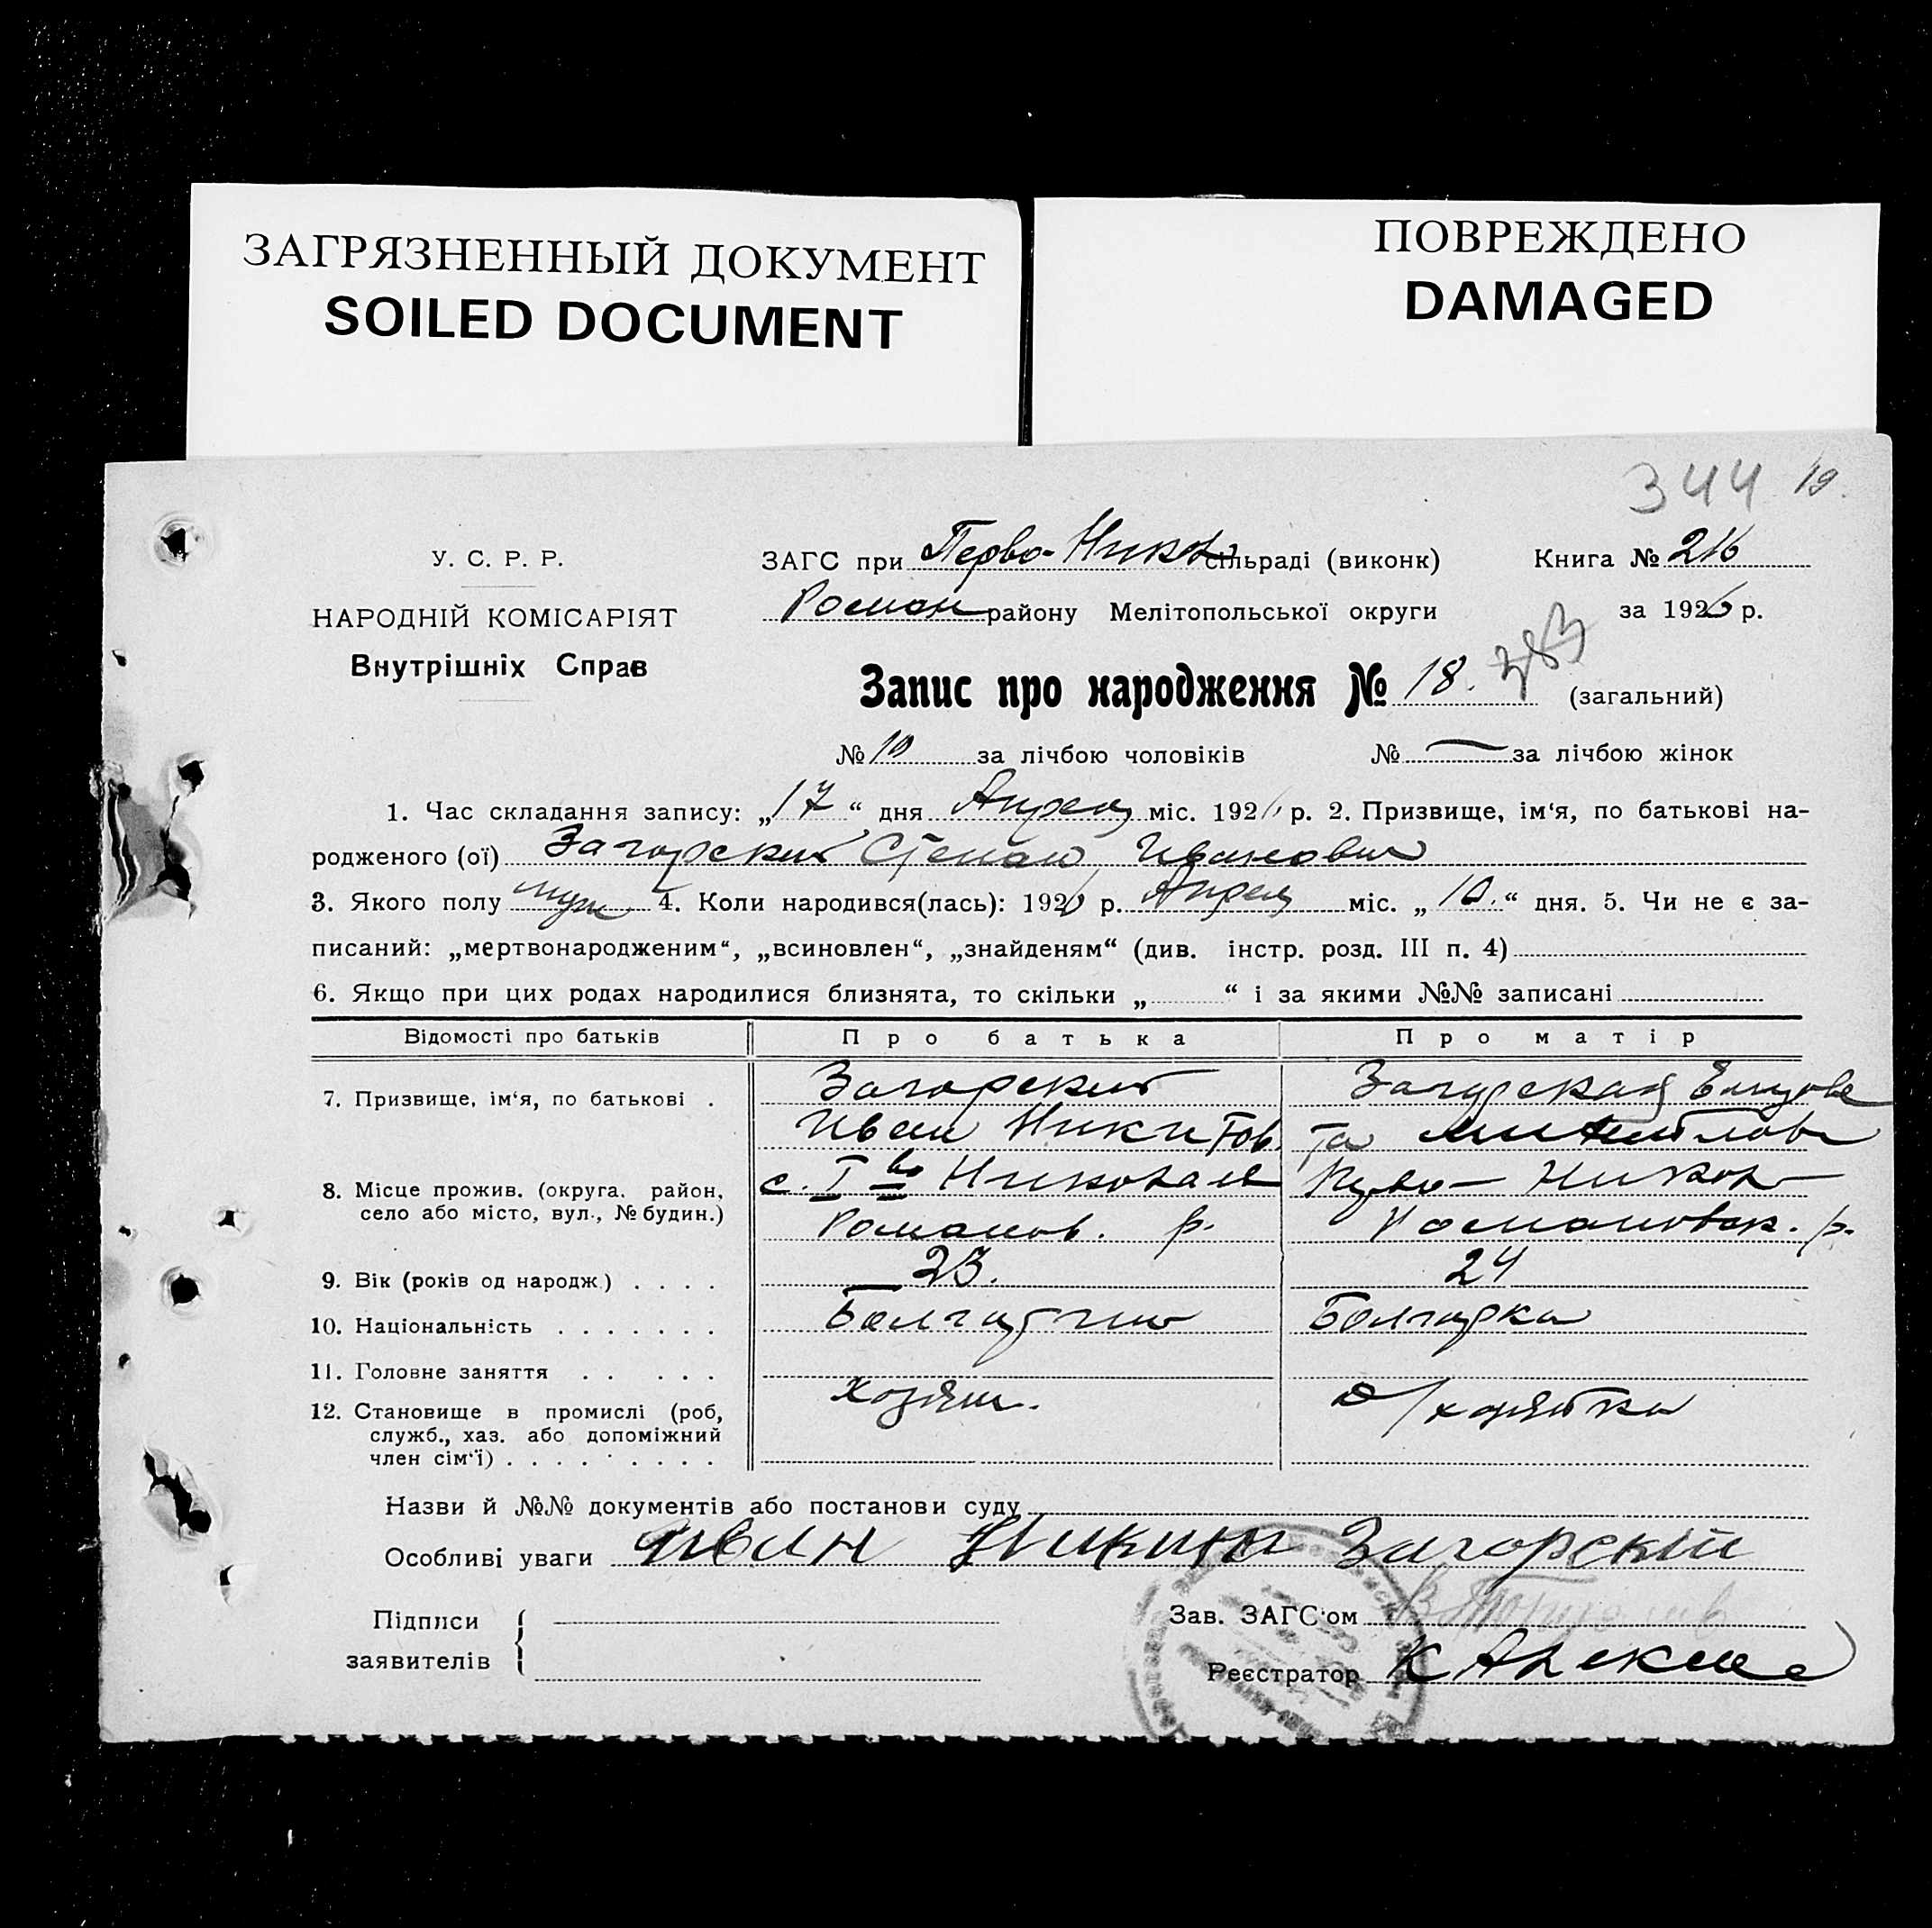 ЗАГРЯЗНЕННЫЙ ДОКУМЕНТ
SOILED DOCUMENT
ПОВРЕЖДЕНО
DAMAGED
344 19.
У. С. Р. Р.
НАРОДНІЙ КОМІСАРІЯТ
Внутрішніх Справ
ЗАГС при Перво-Никол сільраді (виконк) Книга № 216
Роман району Мелітопольської округи за 1926 р.
Запис про народження № 18. 383 (загальний)
№ 10 за лічбою чоловіків № — за лічбою жінок
1. Час складання запису: „17“ дня Апреля міс. 1926 р. 2. Призвище, ім‘я, по батькові на-
родженого (ої) Загорский Степан Иванович
3. Якого полу муж 4. Коли народився(лась): 1926 р. Апреля міс. „10.“ дня. 5. Чи не є за-
писаний: „мертвонародженим“, „всиновлен“, „знайденям“ (див. інстр. розд. III п. 4)
6. Якщо при цих родах народилися близнята, то скільки „ “ і за якими №№ записані
Відомості про батьків Про батька Про матір
7. Призвище, ім‘я, по батькові . Загорский Загорская Елизове
Иван Никитов. та
8. Місце прожив. (округа, район, село або місто, вул., № будин.)
с. Iво Николаев Перво-Никол
Романов. р. Романовск. р.
9. Вік (років од народж.) . . . . 23. 24
10. Національність . . . . . . . Болгарин Болгарка
11. Головне заняття . . . . .
12. Становище в промислі (роб, хозяин. д/хозяйка
служб., хаз. або допоміжний
член сім‘ї) . . . . . . . . .
Назви й №№ документів або постанови суду
Особливі уваги Иван Никити Загорскій
Підписи
заявителів
Зав. ЗАГС‘ом
Реєстратор К Алексее